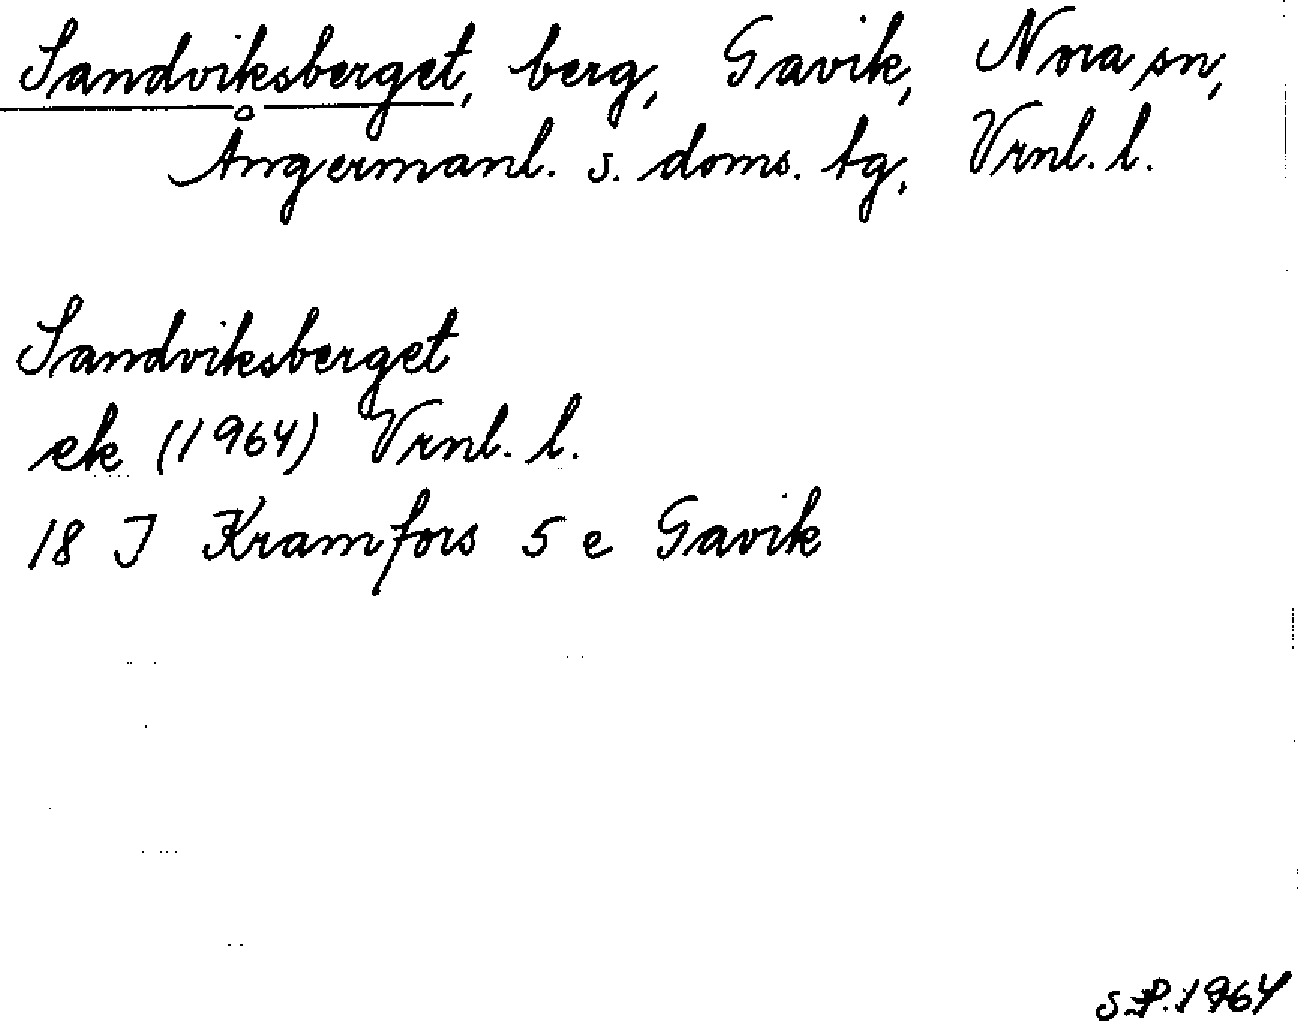 Sandviksberget, berg, Gavik, Nora sn,
Ångermanl. s. doms. tg, Vrnl. l.
Sandviksberget
ek (1964) Vrnl. l.
18 J Kramfors 5 e Gavik
S.P. 1964